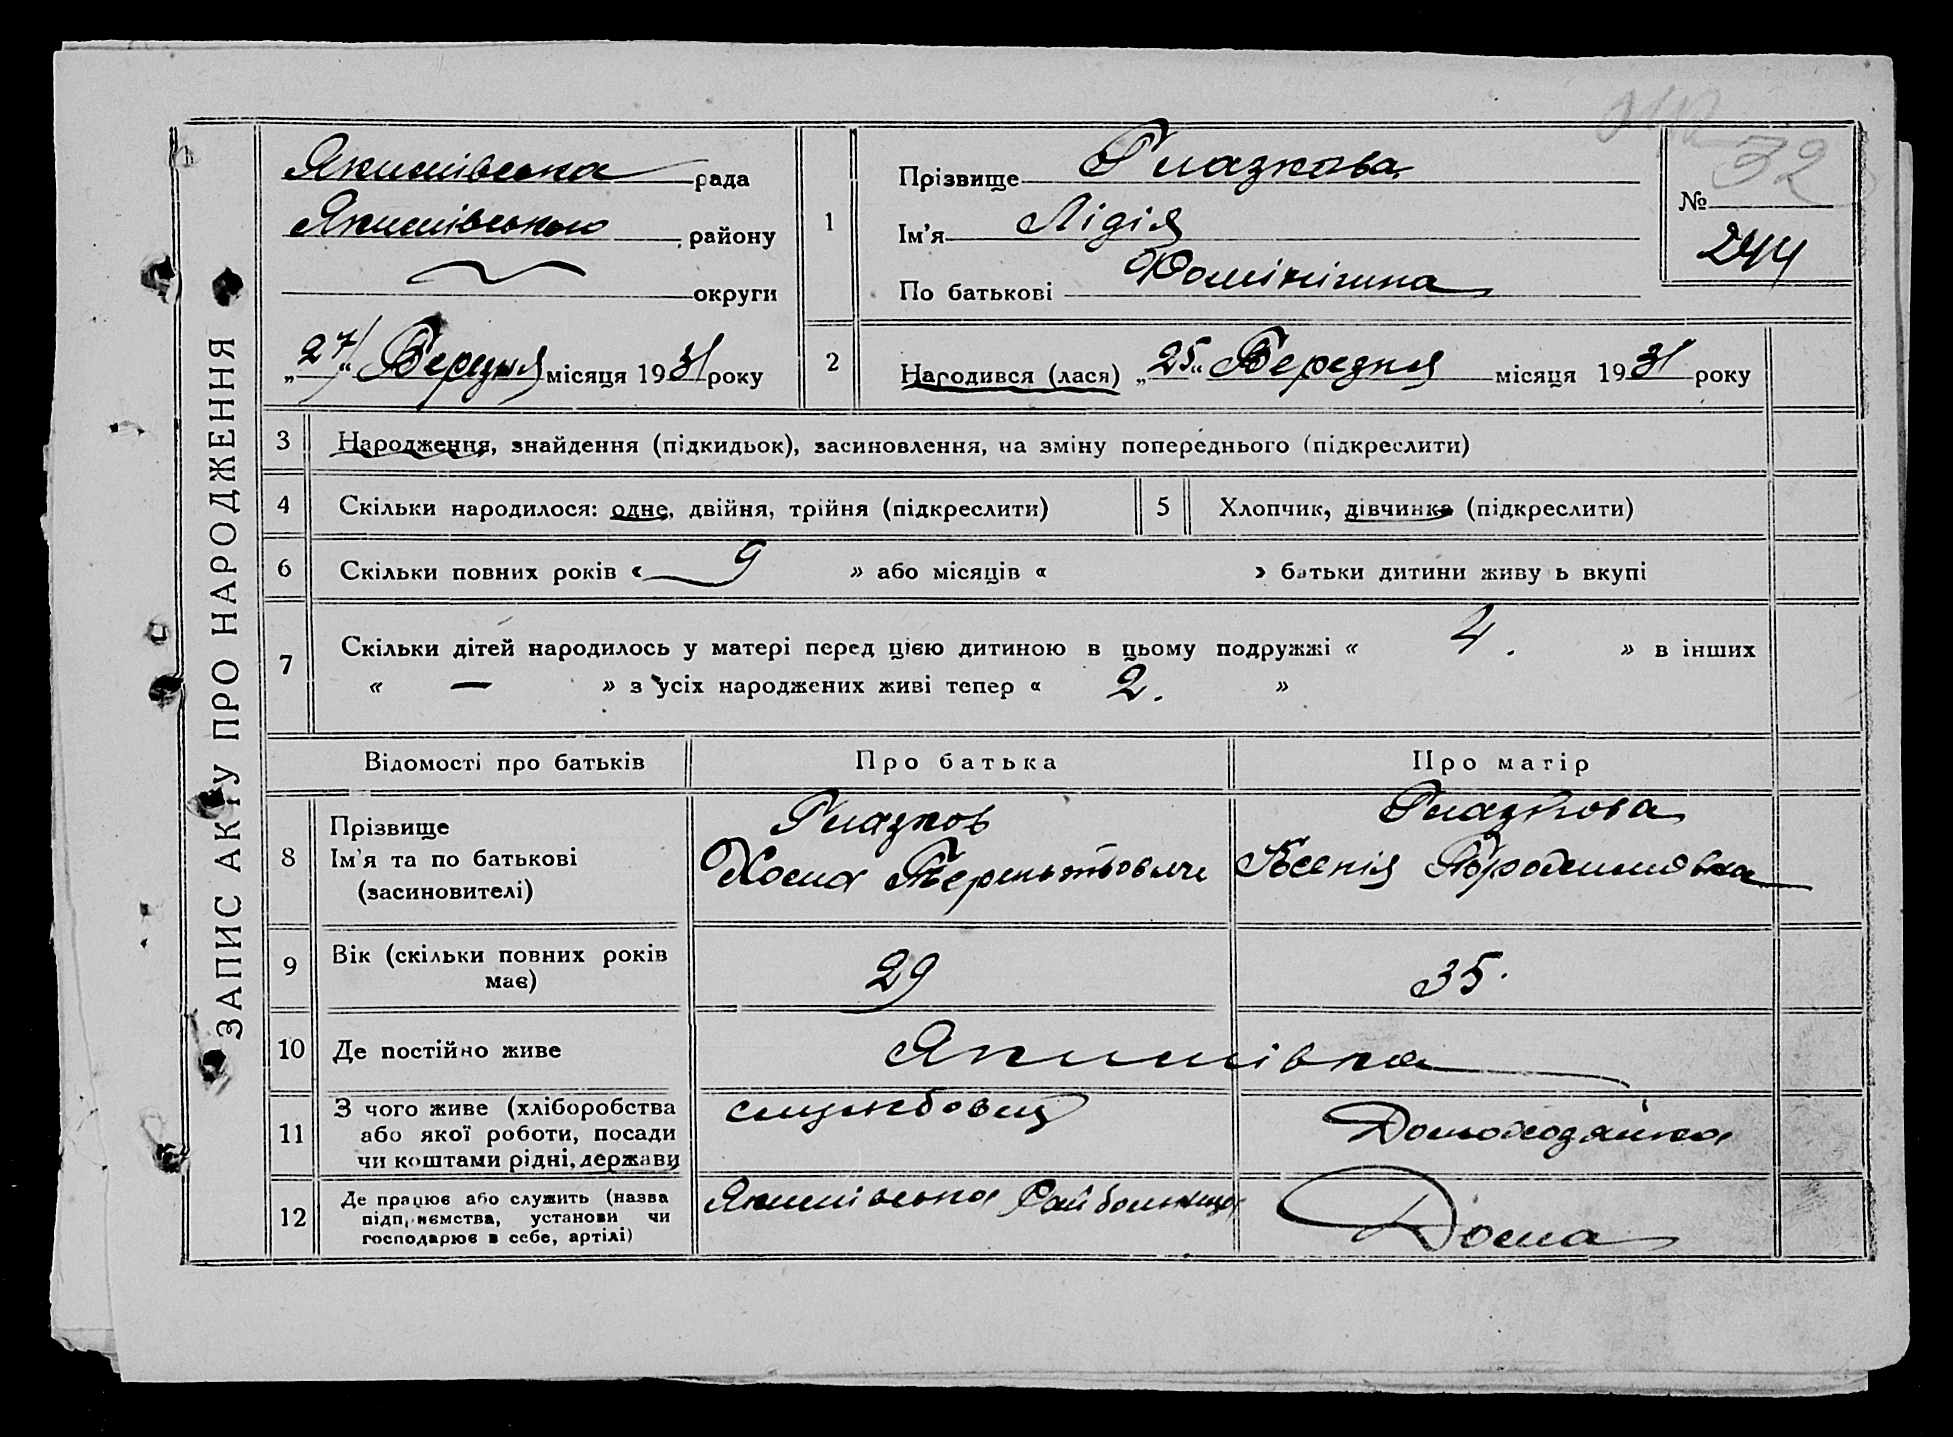 ЗАПИС АКТУ ПРО НАРОДЖЕННЯ
Якимівська рада
Якимівського району
округи
„27“ Березня місяця 1931 року
1
Прізвище Глазкова
Ім'я Лідія
По батькові
32
№
244
2
Народився (лася) „25“ Березня місяця 1931 року
3 Народження, знайдення (підкидьок), засиновлення, на зміну попереднього (підкреслити)
4 Скільки народилося: одне, двійня, трійня (підкреслити)
5 Хлопчик, дівчинка (підкреслити)
6 Скільки повних років « 9 » або місяців « » батьки дитини живу ь вкупі
7 Скільки дітей народилось у матері перед цією дитиною в цьому подружжі « 4. » в інших
« — » з усіх народжених живі тепер « 2. »
Відомості про батьків
Про батька
Про матір
8 Прізвище
Ім'я та по батькові
(засиновителі)
Глазков
Хома Терентьович
Глазкова
Ксенія
9 Вік (скільки повних років
має)
29
35.
10 Де постійно живе
Якимівка
11 З чого живе (хліборобства
або якої роботи, посади
чи коштами рідні, держави
службовец
Домохозяйка
12 Де працює або служить (назва
підприємства, установи чи
господарює в себе, артілі)
Якимівська Райбольница
Дома